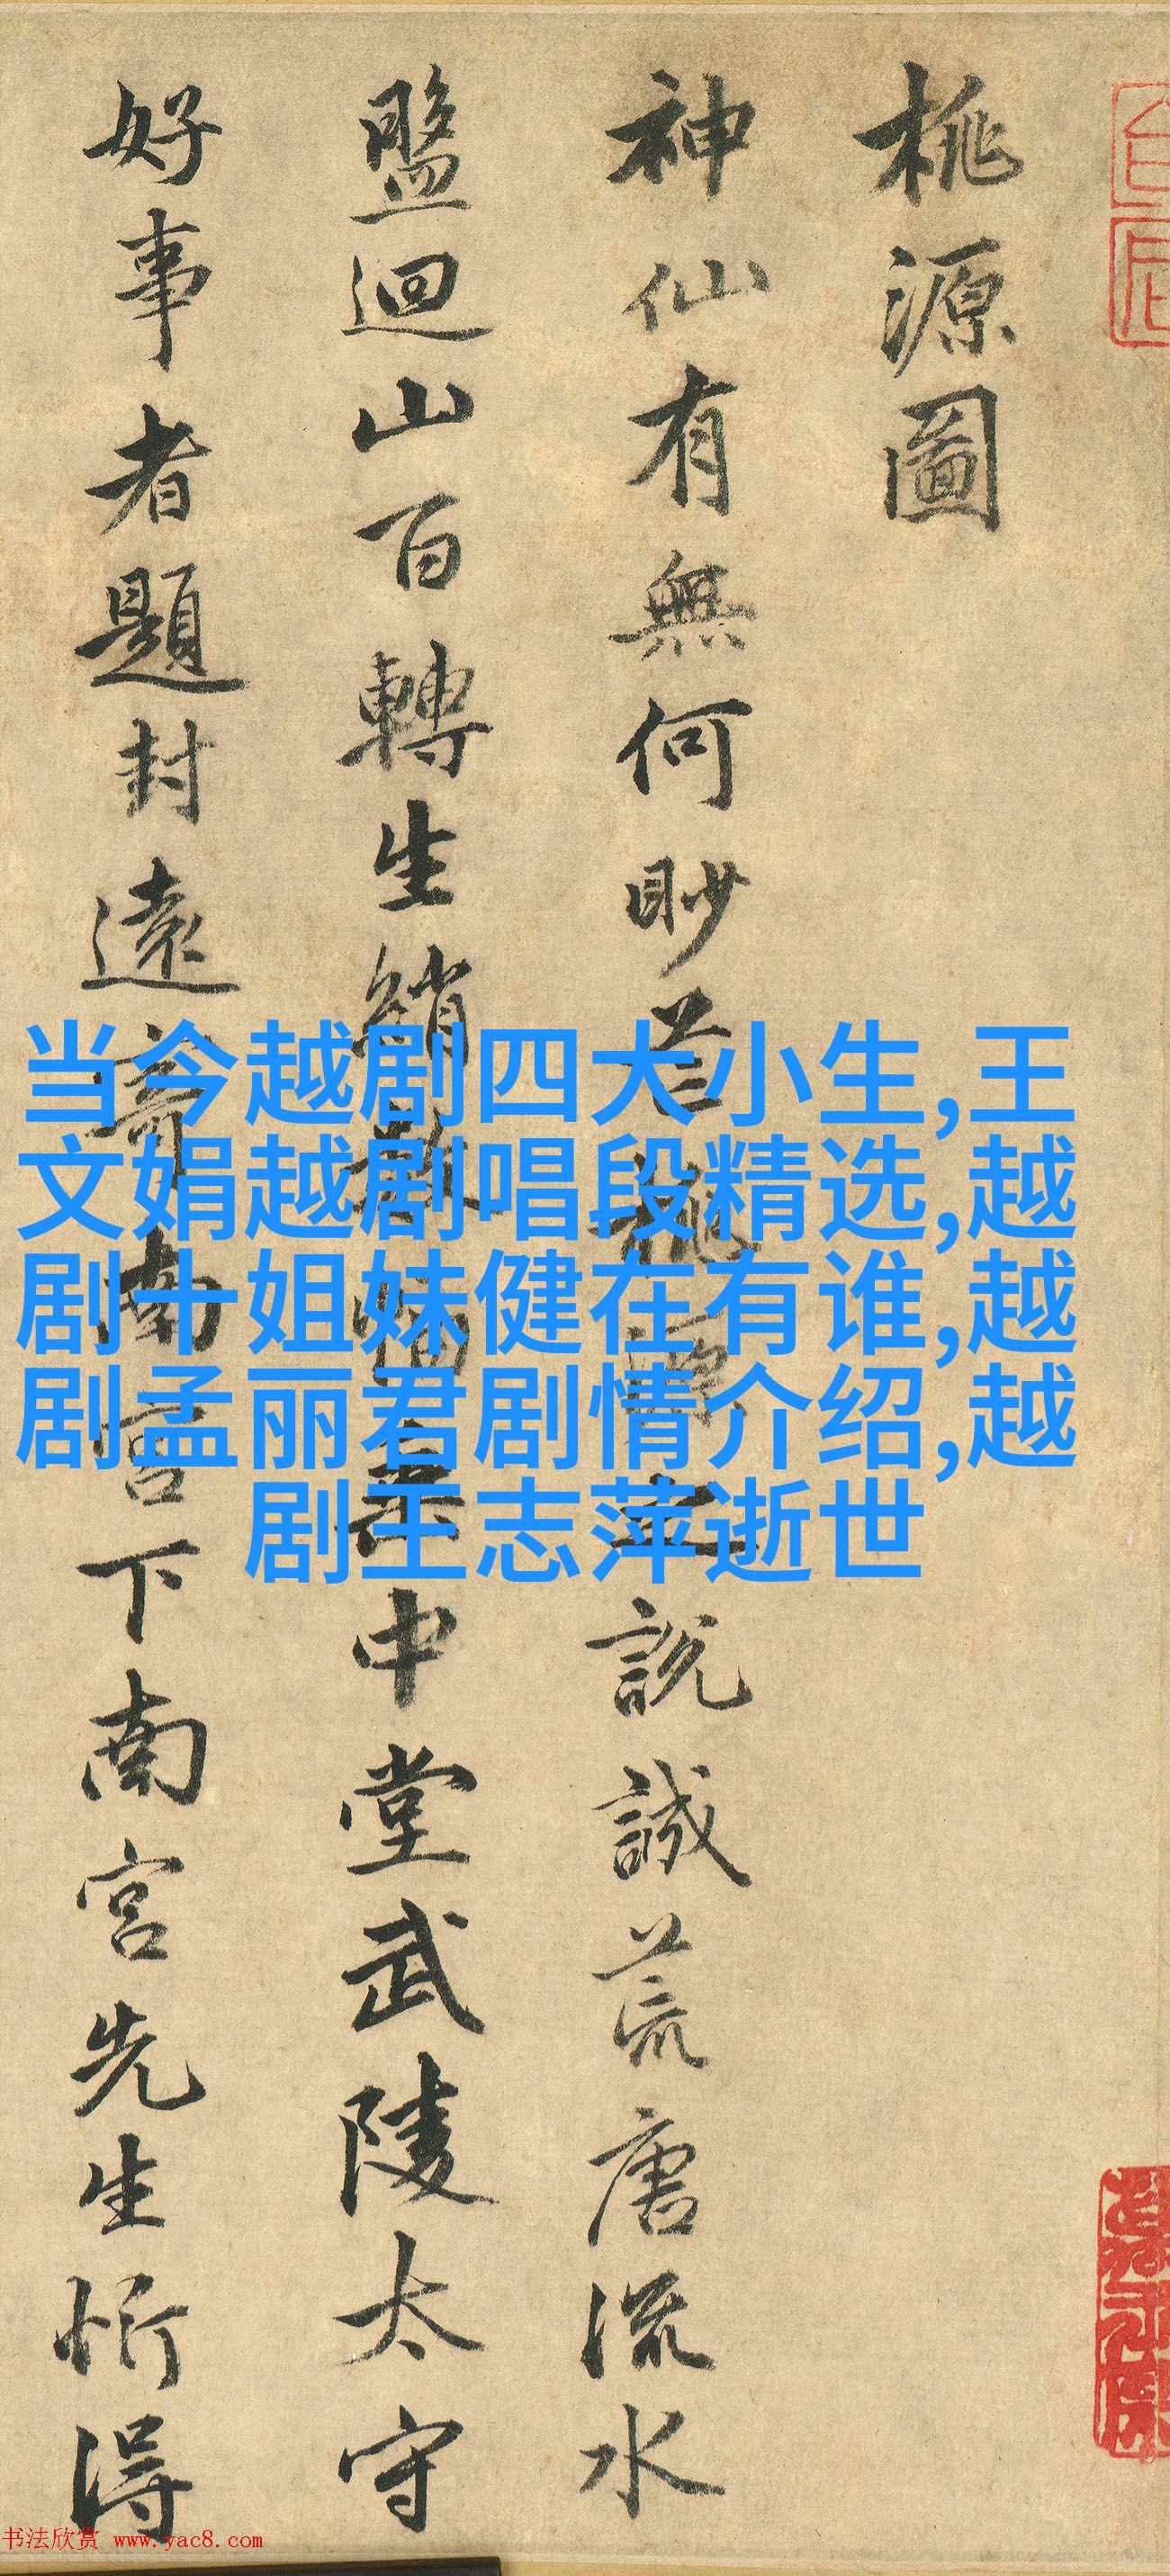 桃源圖
神仙有無何眇芒桃源之說誠荒唐流水
盤迴山百轉生綃數幅垂中堂武陵太守
好事者題封遠寄南宮下南宮先生忻得
当今越剧四大小生,王
文娟越剧唱段精选,越
剧十姐妹健在有谁,越
剧孟丽君剧情介绍,越
剧王志萍逝世
书法欣赏 www.yac8.com